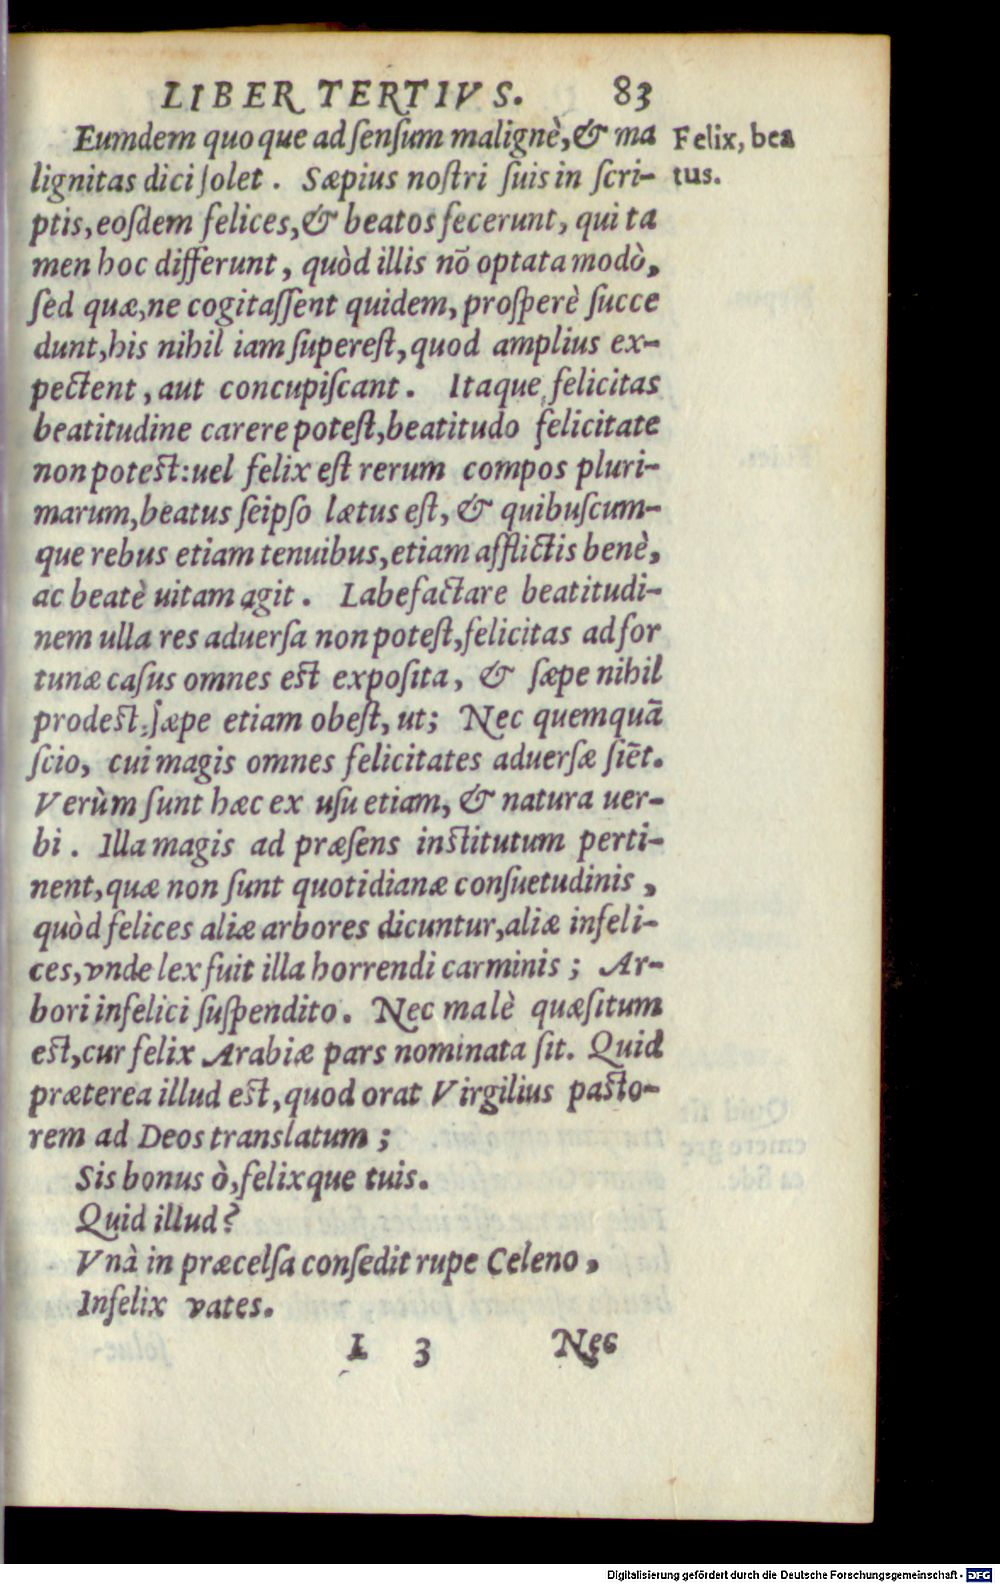 LIBER TERTIVS. 83
Eumdem quoque ad ſenſum malignè, & ma
lignitas dici ſolet. Sæpius noſtri ſuis in ſcri-
ptis, eoſdem felices, & beatos fecerunt, qui ta
men hoc differunt, quòd illis nō optata modò,
ſed quæ, ne cogitaſſent quidem, proſperè ſucce
dunt, his nihil iam ſupereſt, quod amplius ex-
pectent, aut concupiſcant. Itaque felicitas
beatitudine carere poteſt, beatitudo felicitate
non poteſt: uel felix eſt rerum compos pluri-
marum, beatus ſeipſo lætus eſt, & quibuſcum-
que rebus etiam tenuibus, etiam afflictis benè,
ac beatè uitam agit. Labefactare beatitudi-
nem ulla res aduerſa non poteſt, felicitas ad for
tunæ caſus omnes eſt expoſita, & ſæpe nihil
prodeſt, ſæpe etiam obeſt, ut; Nec quemquā
ſcio, cui magis omnes felicitates aduerſæ ſiēt.
Verùm ſunt hæc ex uſu etiam, & natura uer-
bi. Illa magis ad præſens inſtitutum perti-
nent, quæ non ſunt quotidianæ conſuetudinis,
quòd felices aliæ arbores dicuntur, aliæ infeli-
ces, vnde lex fuit illa horrendi carminis; Ar-
bori infelici ſuſpendito. Nec malè quæſitum
eſt, cur felix Arabiæ pars nominata ſit. Quid
præterea illud eſt, quod orat Virgilius paſto-
rem ad Deos translatum;
Sis bonus ò, felixque tuis.
Quid illud?
Vnà in præcelſa conſedit rupe Celeno,
Infelix vates.
I 3 Nec
Felix, bea
tus.
Digitalisierung gefördert durch die Deutsche Forschungsgemeinschaft - DFG